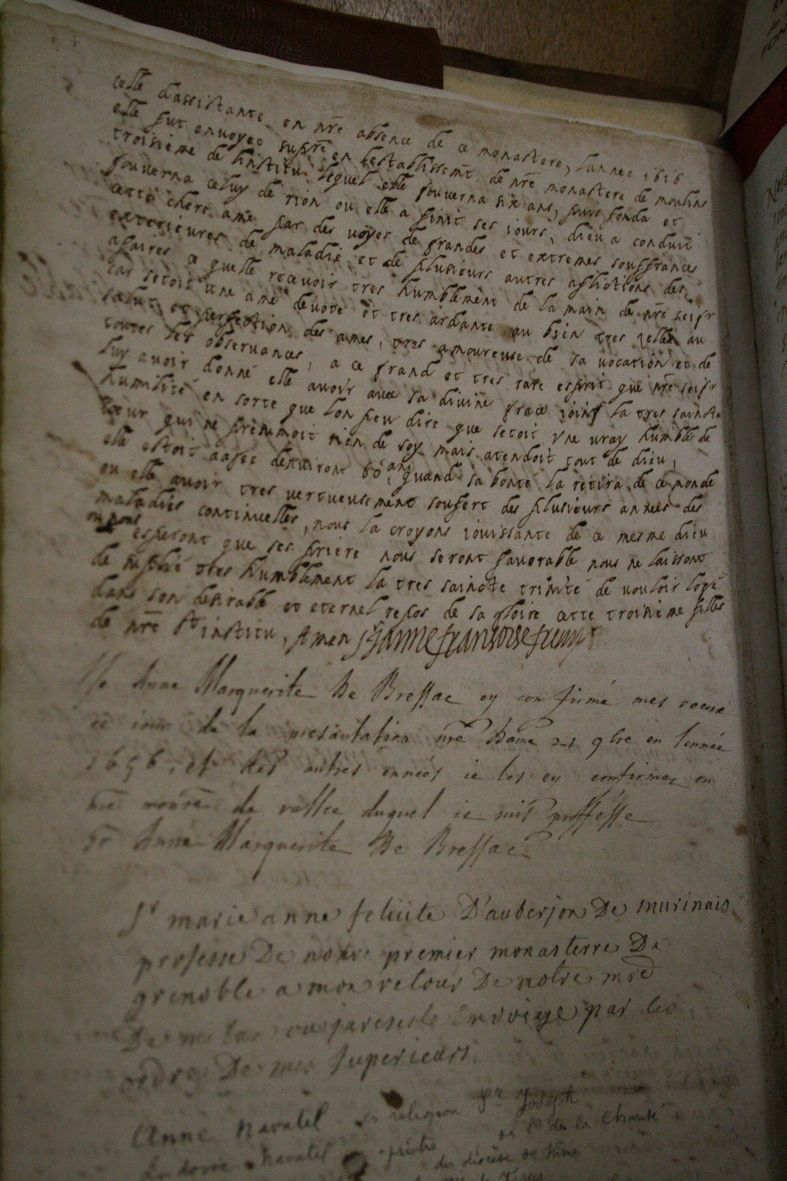 celle dassistante en nre absence de ce monastere, lannee 1616
elle fut envoyee supre en lestablissemt de nre monastere de moulins
troisieme de linstitut lequel elle gouverna six ans, puis fonda et
gouverna celuy de rion ou elle a finit ses iours, dieu a conduit
cette chere ame par des voyes de grandes et extremes souffrances
exterieures de maladie et de plusieurs autres aflictions des
afaires ce quelle recevoir tres humblement de la main de nre seigr
car setoit une ame devote et tres ardante au bien tres zellee au
salut et perfection des ames, tres amoureuse de sa vocation et de
toutes les observances, a ce grand et tres rare esprit que nre seigr
luy avoir donné elle avoir avec sa divine grace joint la tres saincte
humilité en sorte que lon peu dire que setoit yne vray humble de
coeur qui ne presumoit rien de soy mais atendoit tout de dieu,
elle estoit aagee denviront 60 ans, quand sa bonté la retira de ce monde
ou elle avoir tres vertueusement soufert des plusieurs annees des
maladies continuelles, nous la croyons iouissante de ce mesme dieu
ou nous esperont que ses priere nous seront favorable nous ne laissont
de suplié tres humblement la tres saincte trinité de vouloir logé
dans son desirable et eternel repos de sa gloire cette troisieme filles
de nre St institu, Amen
Je Anne Marguerite De Bressac ey confirmé mes voeux
ce iour de la presantation nre Dame 21 9bre en lennée
1656, et des autres ennées ie les ey confirmez en
nre de vallee duquel ie suis proffesse
Sr Anne Marguerite De Bressac
Sr marie anne felicite D'auberjon De murinais
professe De notre premier monasterre De
grenoble a mon retour De notre
De envoiyé par les
ordres De mes superieurs
Anne Navatel en religion Sr Joseph
Navatel prêtre de la Charité
du diocèse de Nimes